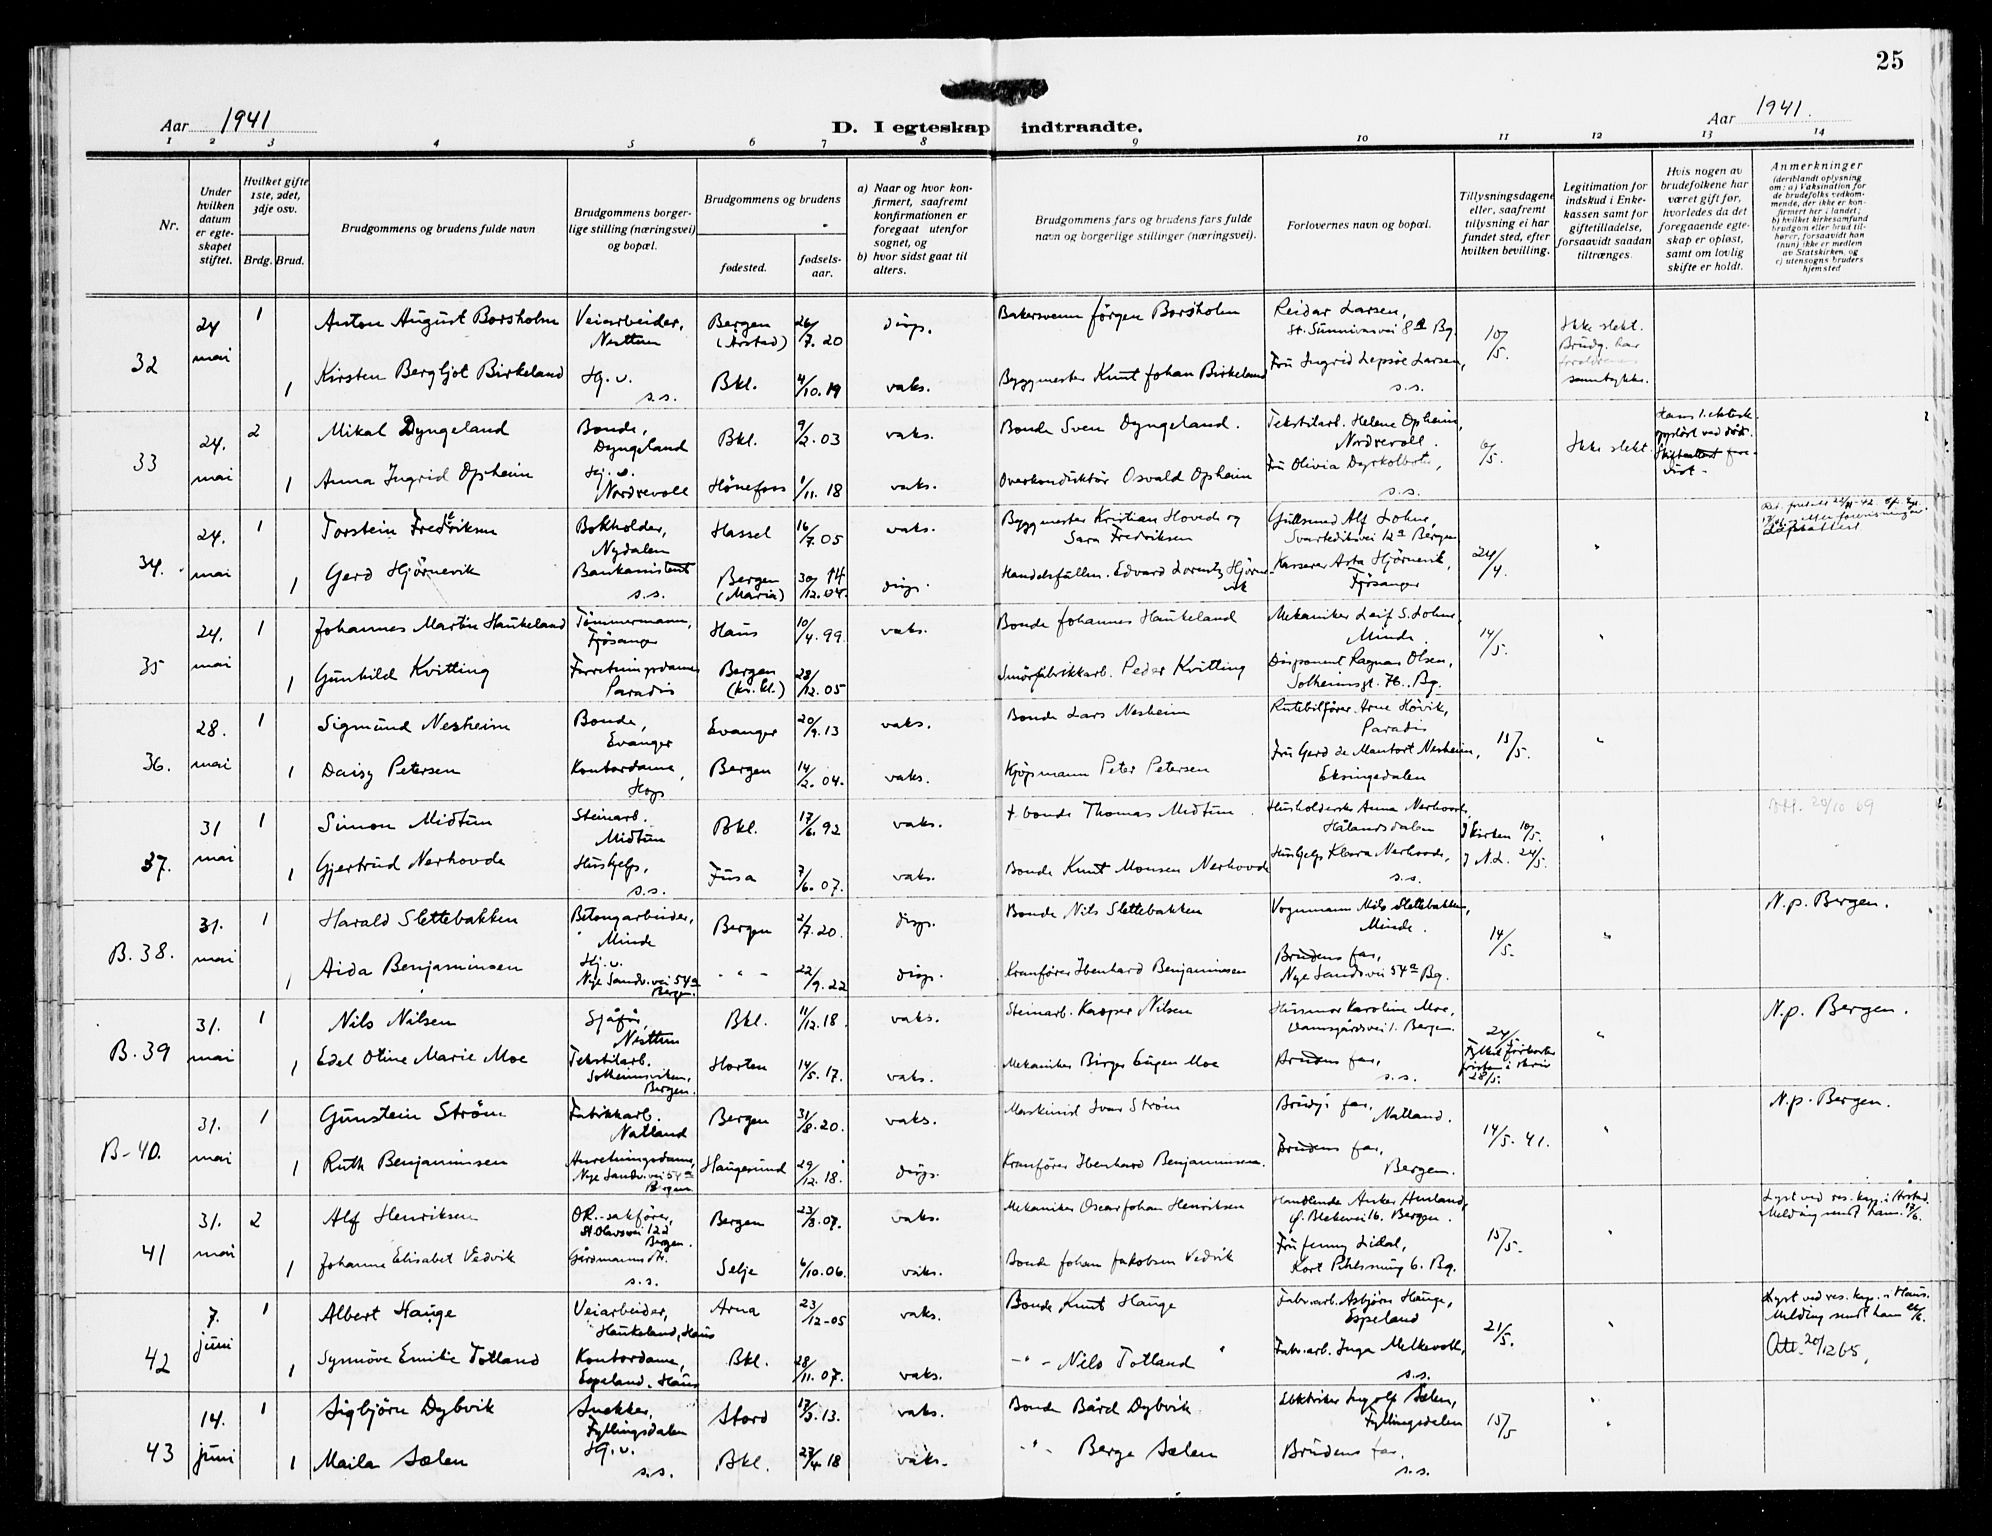 25
Aar 1941
D. I egteskap indtraadte.
Aar 1941.
1 2 3 4 5 6 7 8 9 10 11 12 13 14
Nr.
Under hvilken datum er egteskapet stiftet.
Hvilket gifte 1ste, 2det, 3dje osv.
Brdg. Brud.
Brudgommens og brudens fulde navn
Brudgommens borgerlige stilling (næringsvei) og bopæl.
Brudgommens og brudens
fødested.
fødselsaar.
a) Naar og hvor konfirmert, saafremt konfirmationen er foregaat utenfor sognet, og
b) hvor sidst gaat til alters.
Brudgommens fars og brudens fars fulde navn og borgerlige stillinger (næringsvei).
Forlovernes navn og bopæl.
Tillysningsdagene eller, saafremt tillysning ei har fundet sted, efter hvilken bevilling.
Legitimation for indskud i Enkekassen samt for giftetilladelse, forsaavidt saadan tiltrænges.
Hvis nogen av brudefolkene har været gift før, hvorledes da det foregaaende egteskap er opløst, samt om lovlig skifte er holdt.
Anmerkninger
(deriblandt oplysning om: a) Vaksination for de brudefolks vedkommende, der ikke er konfirmert her i landet; b) hvilket kirkesamfund brudgom eller brud tilhører, forsaavidt han (hun) ikke er medlem av Statskirken, og c) utensogns bruders hjemsted
32 24 mai 1 Anton August Borsholm Veiarbeider, Nesttun Bergen (Årstad) 26/7. 20 disp. Bakersvenn Jörgen Borsholm Reidar Larsen, St. Sunnivasvei 8a Bg. 10/5. Ikke slekt. Brudg. har foreldrenes samtykke.
1 Kirsten Bergljot Birkeland Hj. v. s.s. Bkl. 4/10. 19 vaks. Byggmester Knut Johan Birkeland Fru Ingrid Lepsöe Larsen, s.s.
33 24. mai 2 Mikal Dyngeland Bonde, Dyngeland Bkl. 9/2. 03 vaks. Bonde Sven Dyngeland. Tekstilarb. Helene Opheim, Nordrevoll. 6/5. Ikke slekt. Hans 1. ektesk. opplöst ved död.
1 Anna Ingrid Opheim Hj. v. Nordrevoll Hönefoss 1/11. 18 vaks. Overkonduktör Osvald Opheim Fru Olivia Dyrkolbotn, s.s.
34. 24. mai 1 Torstein Fredriksen Bokholder, Nydalen Hassel 16/7. 05 vaks. Byggmester Kristian Hovede og Sara Fredriksen Gullsmed Alf Lohne, Svartediksvei 12a Bergen 24/4. "
1 Gerd Hjörnevik Bankassistent s.s. Bergen (Maria) 30/12. 04. 14 disp. Handelsfullm. Edvard Lorentz Hjörnevik Kasserer Asta Hjörnevik, Fjösanger
35 24. mai 1 Johannes Martin Haukeland Tömmermann, Fjösanger Haus 10/4. 99. vaks. Bonde Johannes Haukeland Mekaniker Leif S. Lohne, Minde. 14/5. "
1 Gunhild Kvitting Forretningsdame Paradis Bergen (kr. kl.) 28/12. 05 Smörfabrikkarb. Peder Kvitting Disponent Ragnar Olsen, Solheimsgt. 76. Bg.
36. 28. mai 1 Sigmund Nesheim Bonde, Evanger Evanger 20/9. 13 vaks. Bonde Lars Nesheim Rutebilförer Arne Hövik, Paradis 15/5. "
1 Daisy Petersen Kontordame, Hop Bergen 14/2. 04. vaks. Kjöpmann Peter Petersen Fru Gerd de Mantort Nesheim, Eksingedalen
37. 31 mai 1 Simon Midtun Steinarb. Midtun Bkl. 17/6. 92 vaks. + bonde Thomas Midtun. Husholderske Anna Nerhovde, Hålandsdalen I kirken 10/5. I N.L. 24/5. " 20/10 69
1 Gjertrud Nerhovde Hushjelp, s.s. Fusa 7/6. 07. vaks. Bonde Knut Monsen Nerhovde Hushjelp Klara Nerhovde, s.s.
B. 38. 31. mai 1 Harald Slettebakken Betongarbeider, Minde Bergen 2/7. 20. disp. Bonde Nils Slettebakken Vognmann Nils Slettebakken, Minde. 14/5. " N.p. Bergen.
1 Aida Benjaminsen Hj. v. Nye Sandv. vei 54a Bergen. - " - 22/9. 22 disp. Kranförer Ibenhard Benjaminsen Brudens far, Nye Sandv. vei 54a Bg.
B. 39 31. mai 1 Nils Nilsen Sjåför, Nesttun Bkl. 11/12. 18. vaks. Steinarb. Kasper Nilsen Husmor Karoline Moe, Damsgårdsvei 1. Bergen. 24/5 " N.p. Bergen.
1 Edel Otine Marie Moe Tekstilarb. Solheimsviken, Bergen. Horten 14/5. 17. vaks. Mekaniker Birger Eugen Moe Brudens far, s.s. 28/5.
B-40. 31. mai 1 Gunstein Ström Fabrikkarb. Natland Bergen 31/8. 20. vaks. Maskinist Ivar Ström Brudg's far, Natland. 14/5. 41. " N.p. Bergen.
1 Ruth Benjaminsen Anretningsdame, Nye Sandv. vei 54a Bergen Haugesund 29/12. 18. disp. Kranförer Ibenhard Benjaminsen. Brudens far, Bergen.
41 31. mai 2 Alf Henriksen O.R. sakförer, St. Olavsvei 12a Bergen. Bergen 23/3. 07. vaks. Mekaniker Oscar Johan Henriksen Handlende Anker Amland, G. Blekevei 16. Bergen. 15/5. " Lyst ved res. kap. i Årstad. Melding sendt ham 17/6.
1 Johanne Elisabet Vedvik Gårdmannsdtr. s.s. Selje 6/10. 06. vaks. Bonde Johan Jakobsen Vedvik Fru Jenny Lidal, Kort Pihlsmug 6. Bg.
42 7. juni 1 Albert Hauge Veiarbeider, Haukeland, Haus Arna 23/12-05 vaks. Bonde Knut Hauge Fabr.arb. Asbjörn Hauge, Espeland 21/5. " Lyst ved res. kap. i Haus. Melding sendt ham
1 Synnöve Emilie Totland Kontordame, Espeland, Haus Bkl. 28/11. 07. vaks. - " - Nils Totland Fabr.arb. Inga Melkevoll, s.s. Att. 20/12 65,
43 14. juni 1 Sigbjörn Dybvik Snekker, Fyllingsdalen Stord 17/3. 13. vaks. Bonde Bård Dybvik Elektriker Ingolf Sælen, Fyllingsdalen 15/5 "
1 Maila Sælen Hj. v. s.s. Bkl. 27/4. 18 vaks. - " - Berge Sælen Brudens far, s.s.